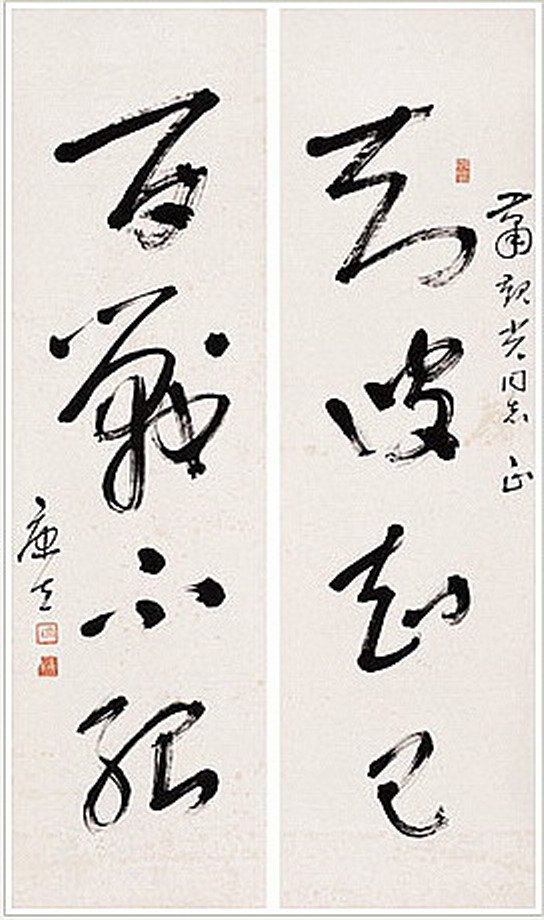 蕭 光同志 正
知彼知己
百戰不殆
康生